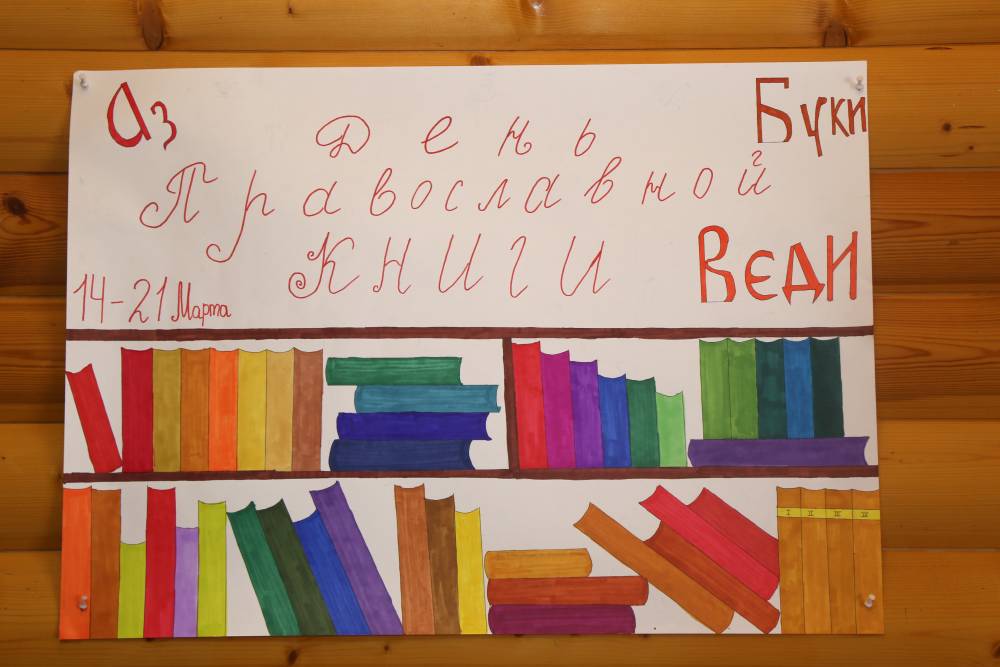 Аз
Буки
День
Православной
Книги
Веди
14-21 Марта
I II III IV